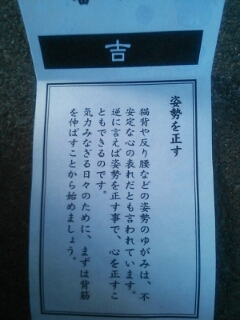 吉
姿勢を正す
猫背や反り腰などの姿勢のゆがみは、不
安定な心の表れだとも言われています。
逆に言えば姿勢を正す事で、心を正すこ
ともできるのです。
気力みなぎる日々のために、まずは背筋
を伸ばすことから始めましょう。